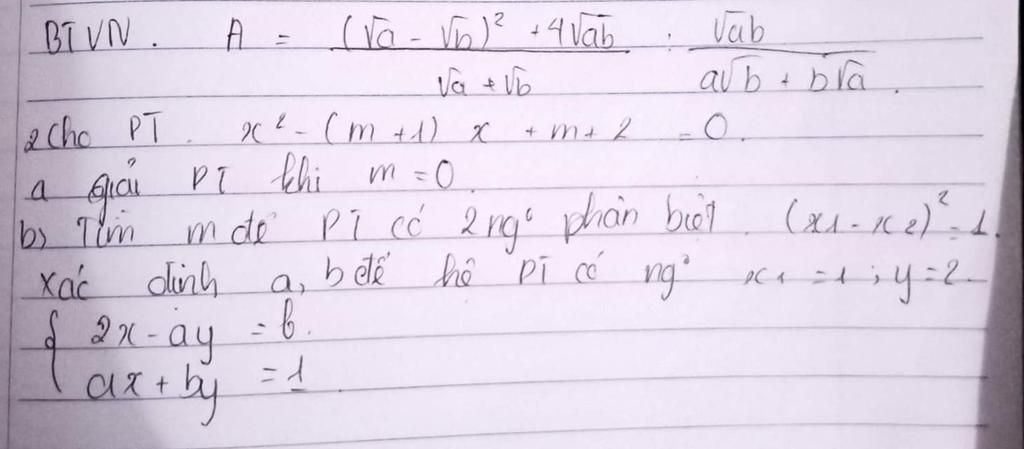 BTVN. A = \frac{(√a - √b)² + 4√ab}{√a + √b} : \frac{√ab}{a√b + b√a}.
2 Cho PT. x² - (m + 1) x + m + 2 = 0.
a giải PT khi m = 0.
b) Tìm m để PT có 2 ng⁰ phân biệt. (x1 - x2)² = 1.
xác định a, b để hệ PT có ng⁰ x1 = 1 ; y = 2.
{ 2x - ay = b.
ax + by = 1